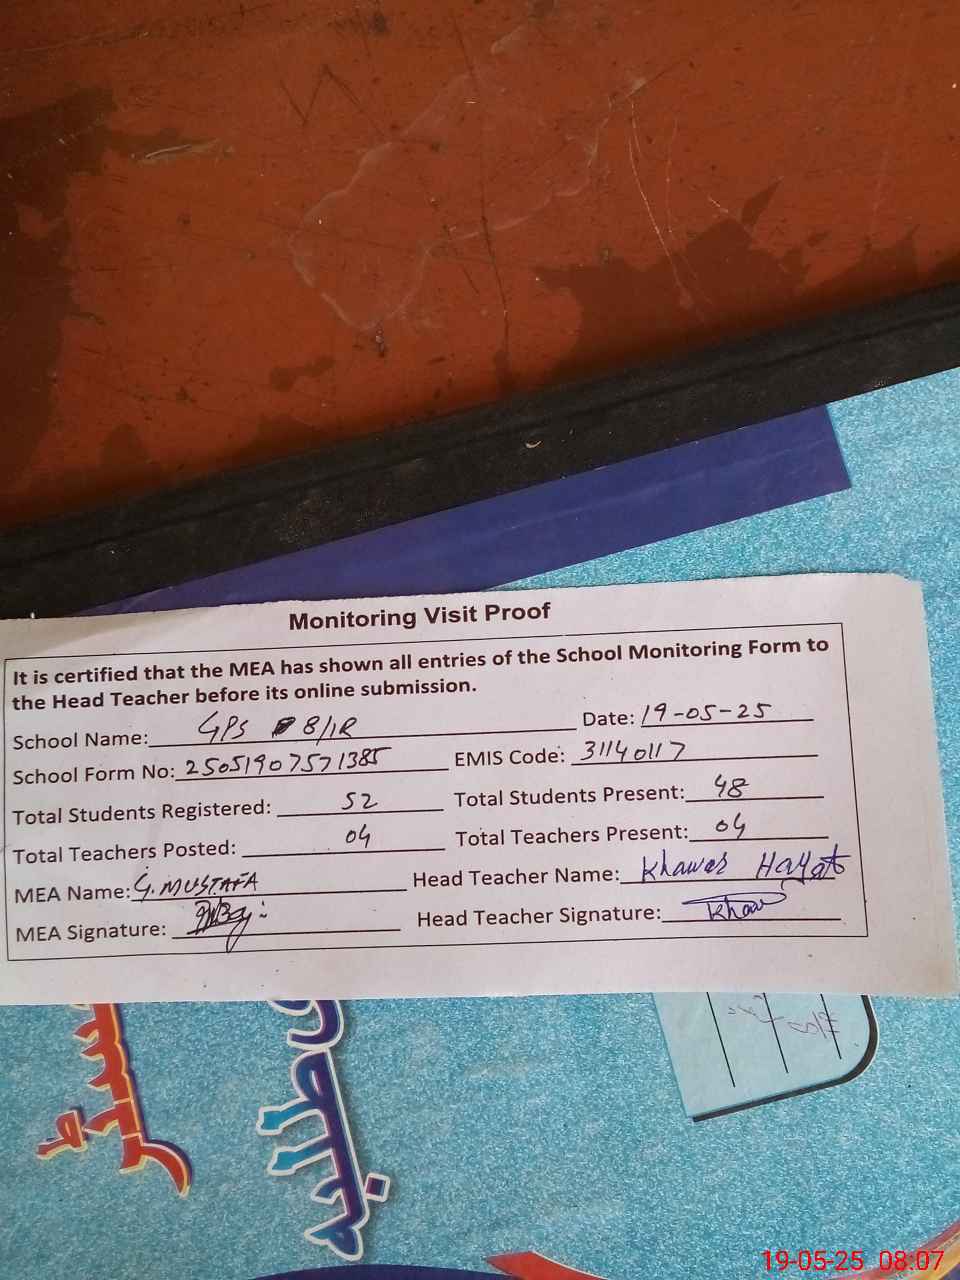 Monitoring Visit Proof
It is certified that the MEA has shown all entries of the School Monitoring Form to
the Head Teacher before its online submission.
School Name: GPS 8/1R Date: 19-05-25
School Form No: 25051907571385 EMIS Code: 31140117
Total Students Registered: 52 Total Students Present: 48
Total Teachers Posted: 04 Total Teachers Present: 04
MEA Name: G. MUSTAFA Head Teacher Name: Khawar Hayat
MEA Signature: Head Teacher Signature: Khaw
رجسٹر
طلبہ
19-05-25 08:07